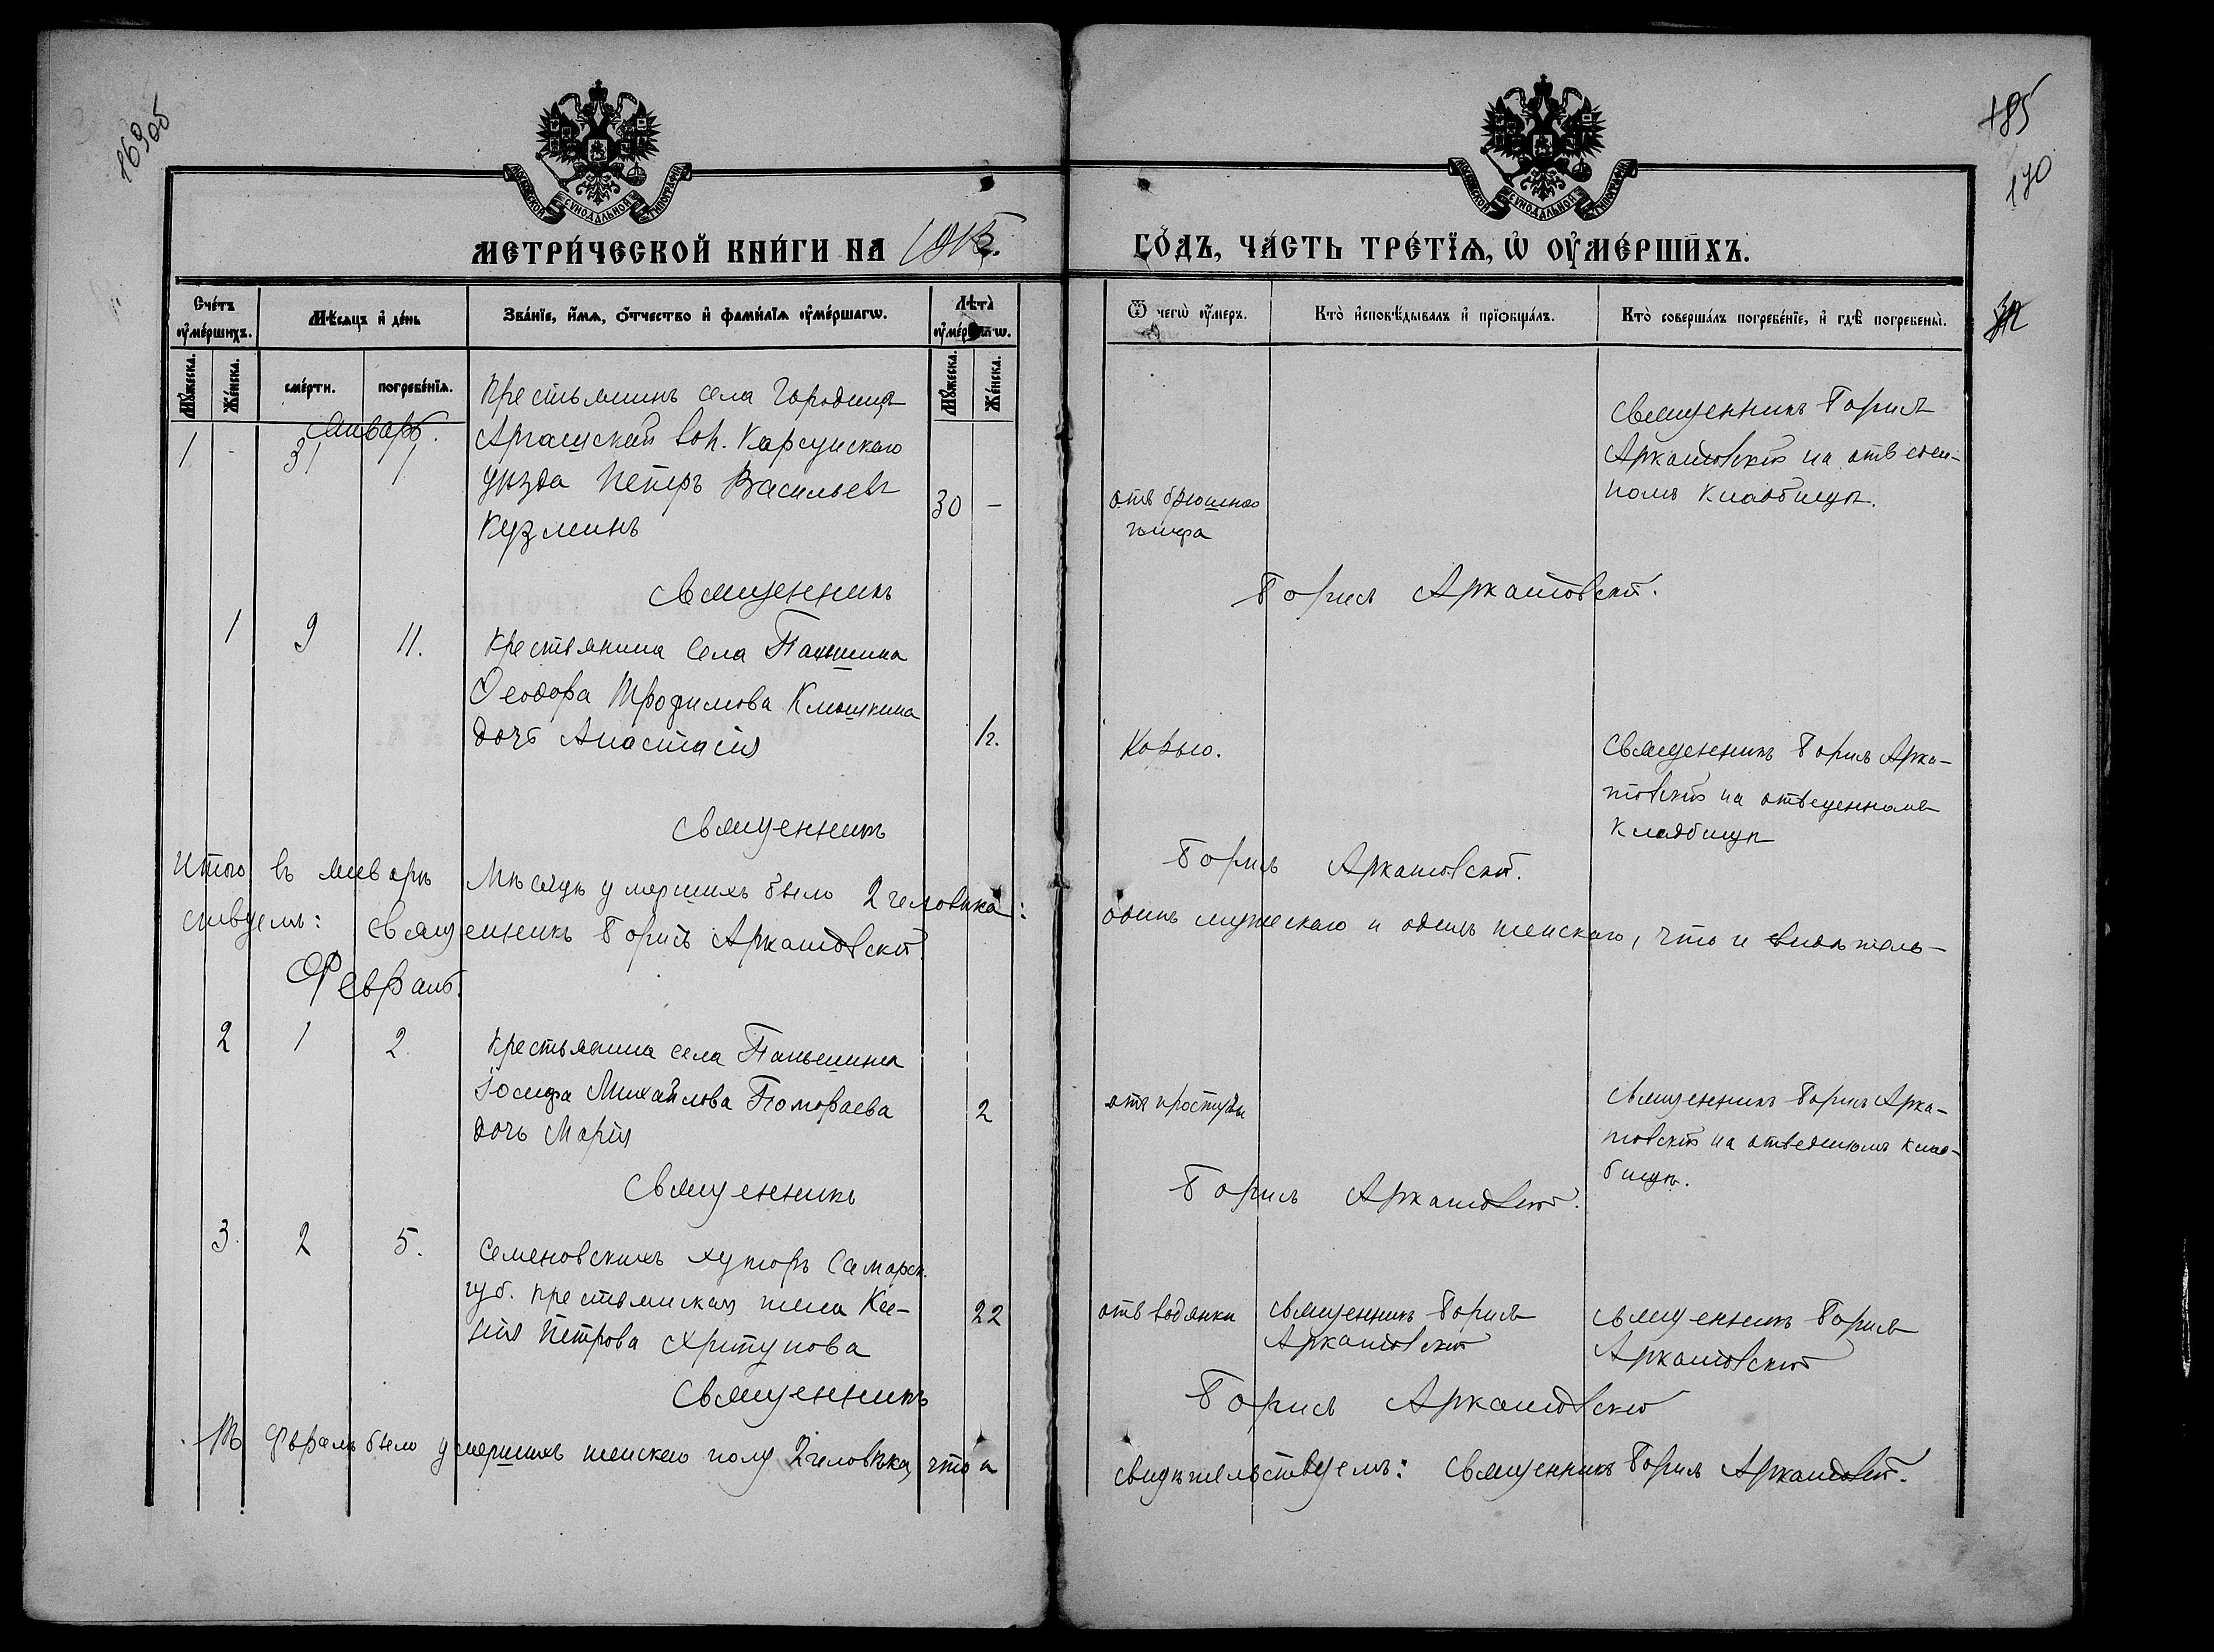 169об
185
170
МОСКОВСКОЙ СѴНОДАЛЬНОЙ ТИПОГРАФІИ
МОСКОВСКОЙ СѴНОДАЛЬНОЙ ТИПОГРАФІИ
МЕТРИ́ЧЕСКОЙ КНИ́ГИ НА
ГО́ДЪ, ЧА́СТЬ ТРЕ́ТЇѦ, Ѡ҆ ОУ҆МЕ́РШИХЪ.
Сче́тъ оу҆ме́ршихъ.
Мѣ́сѧцъ и҆ де́нь
Зва́нїе, и҆́мѧ, ѻ҆́тчество и҆ фами́лїѧ оу҆ме́ршагѡ.
Лѣта̀ оу҆ме́ршагѡ.
Ѿ чегѡ̀ оу҆́меръ.
Кто̀ и҆сповѣ́дывалъ и҆ прїѡбща́лъ.
Кто̀ соверша́лъ погребе́нїе, и҆ гдѣ̀ погребены̀.
Мꙋ́жеска.
Же́нска.
сме́рти.
погребе́нїѧ.
Мꙋ́жеска.
Же́нска.
Январь.
1 -
Крестьянинъ села Городищъ
Аргашской вол. Карсунскаго
уѣзда Петръ Васильевъ
Кузминъ
30 -
отъ брюшного
тифа
Священникъ Борисъ
Аркатовскій на отведен-
номъ кладбищѣ.
Священникъ Борисъ Аркатовскій.
1 9 11.
Крестьянина села Паньшина
Ѳеодора Трофимова Клюшкина
дочь Анастасія
1г.
Корью.
Священникъ Борисъ Арка-
товскій на отведенномъ
кладбищѣ
Священникъ Борисъ Аркатовскій.
Итого въ январѣ мѣсяцѣ умершихъ было 2 человѣка: одинъ мужескаго и одинъ женскаго, что и свидѣтель-
ствуемъ: Священникъ Борисъ Аркатовскій.
Февраль.
2 1 2.
Крестьянина села Паньшина
Іосифа Михайлова Помораева
дочь Марія
2
отъ простуды
Священникъ Борисъ Арка-
товскій на отведенномъ клад-
бищѣ.
Священникъ Борисъ Аркатовскій.
3. 2 5.
Семеновскихъ хуторъ Самарск.
губ. крестьянская жена Ксе-
нія Петрова Хритунова
22
отъ водянки
Священникъ Борисъ
Аркатовскій
Священникъ Борисъ
Аркатовскій
Священникъ Борисъ Аркатовскій
Въ Февралѣ было умершихъ женскаго полу 2 человѣка, что и свидѣтельствуемъ: Священникъ Борисъ Аркатовскій.